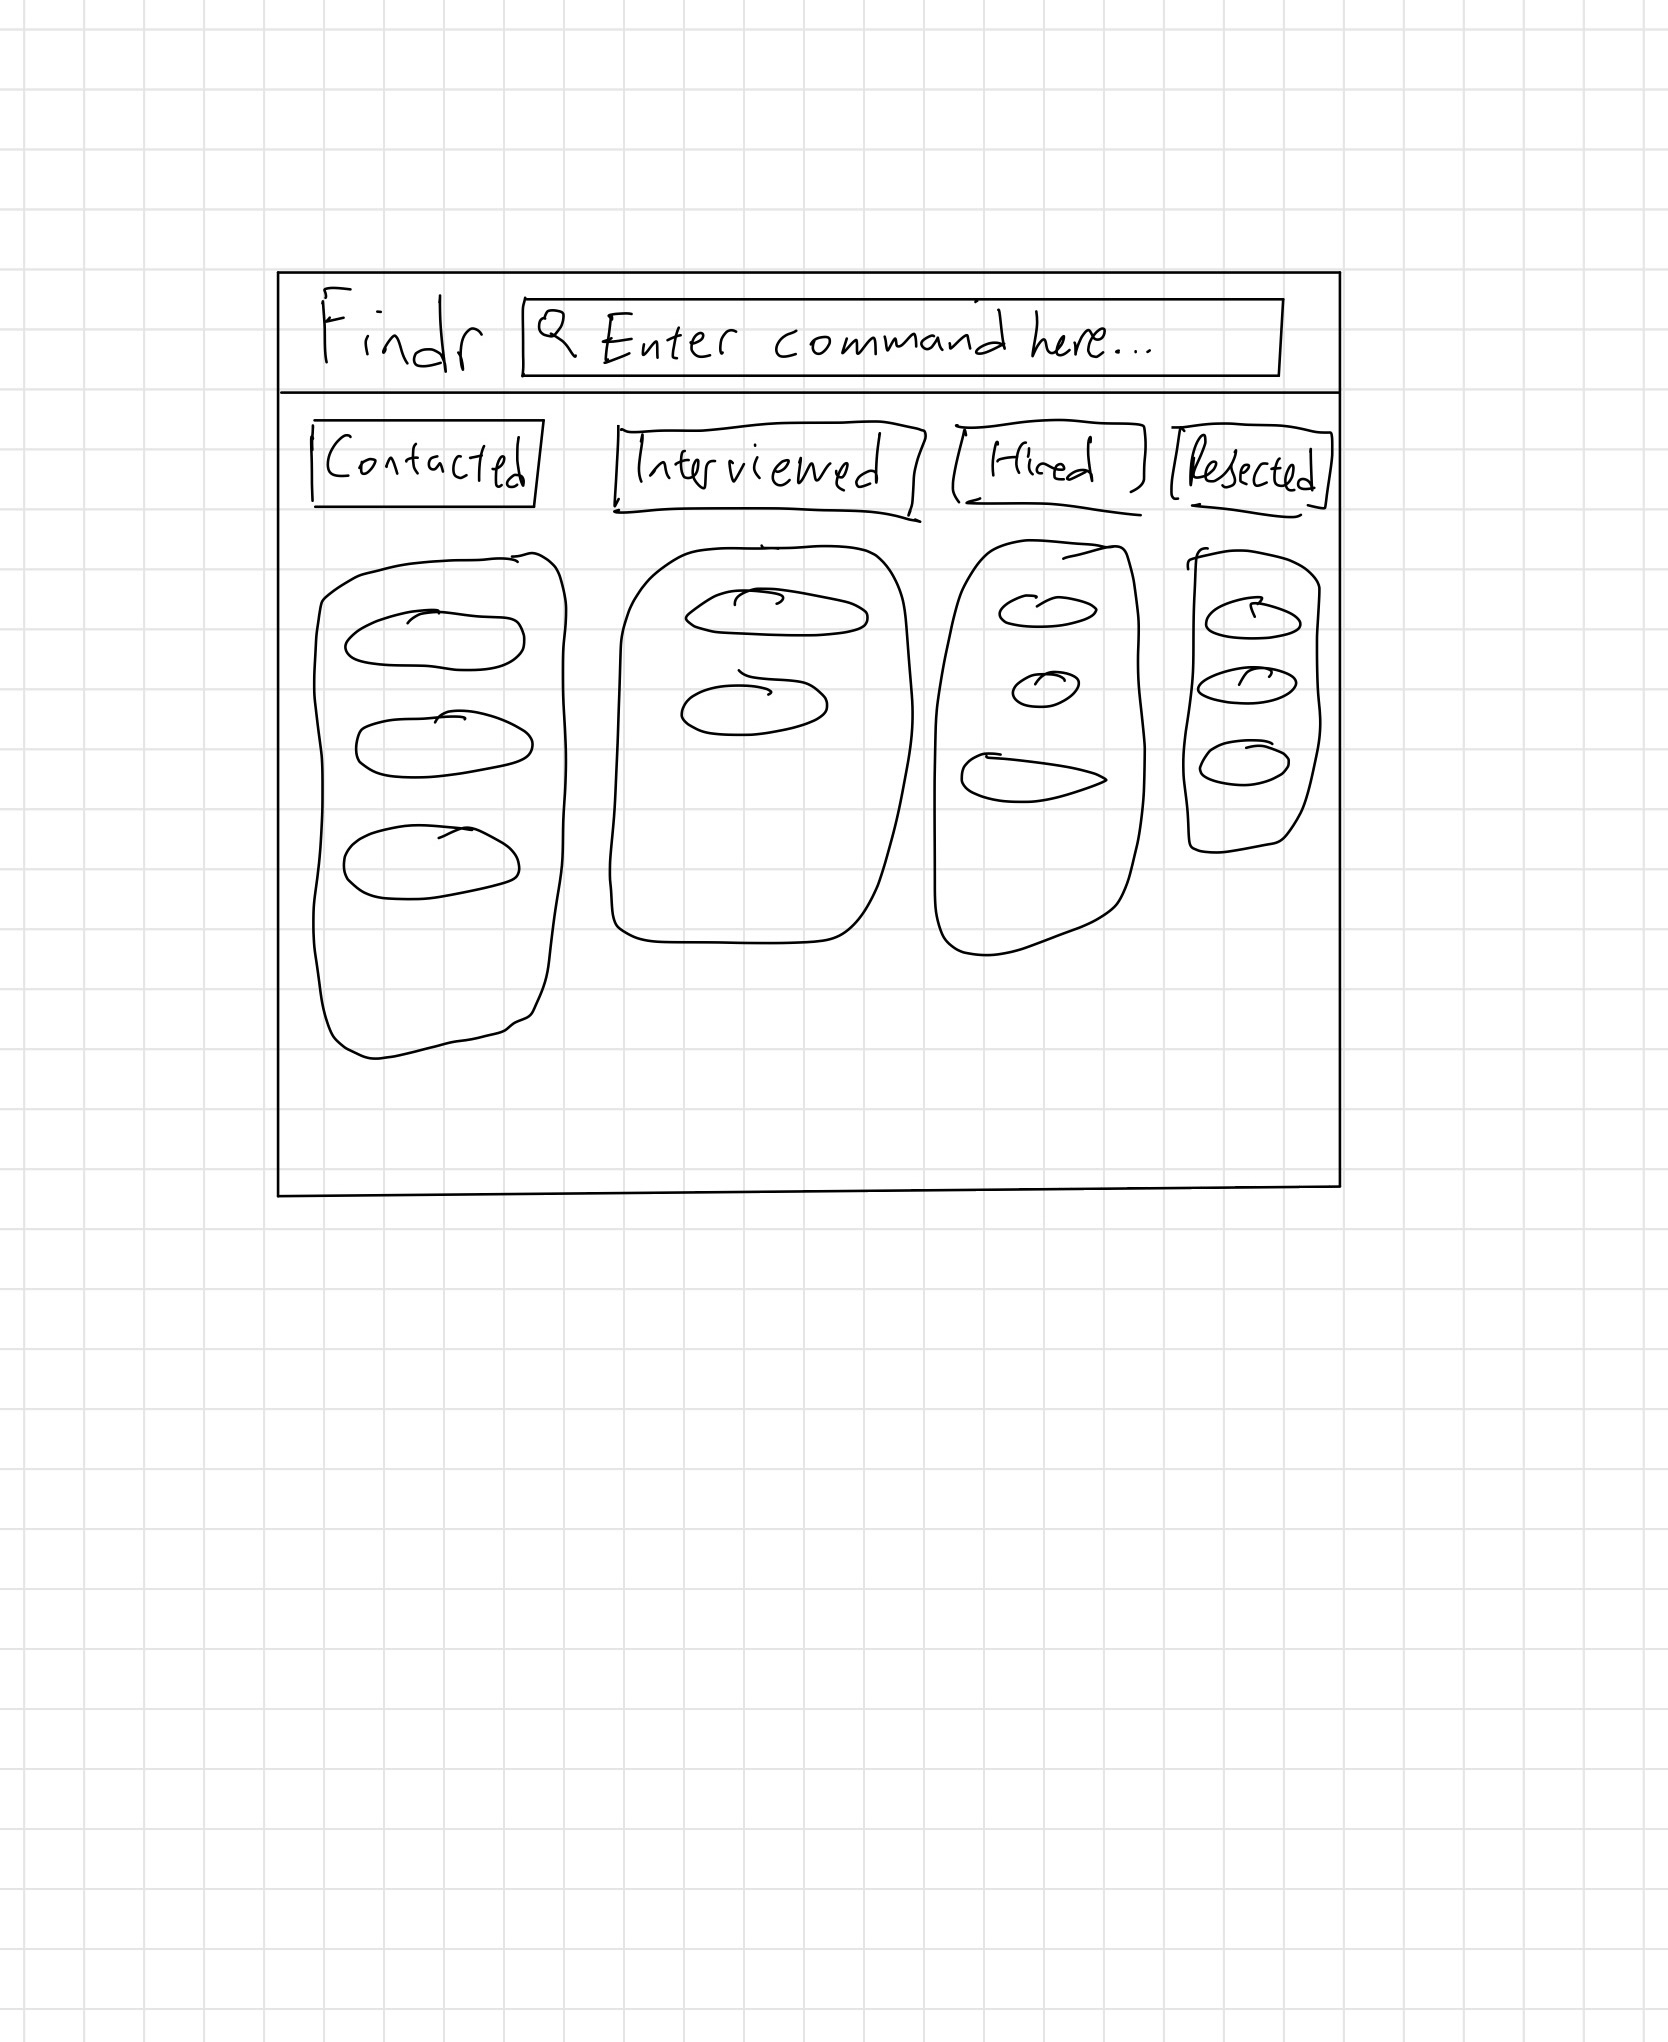 Findr
Enter command here...
Contacted
Interviewed
Hired
Rejected